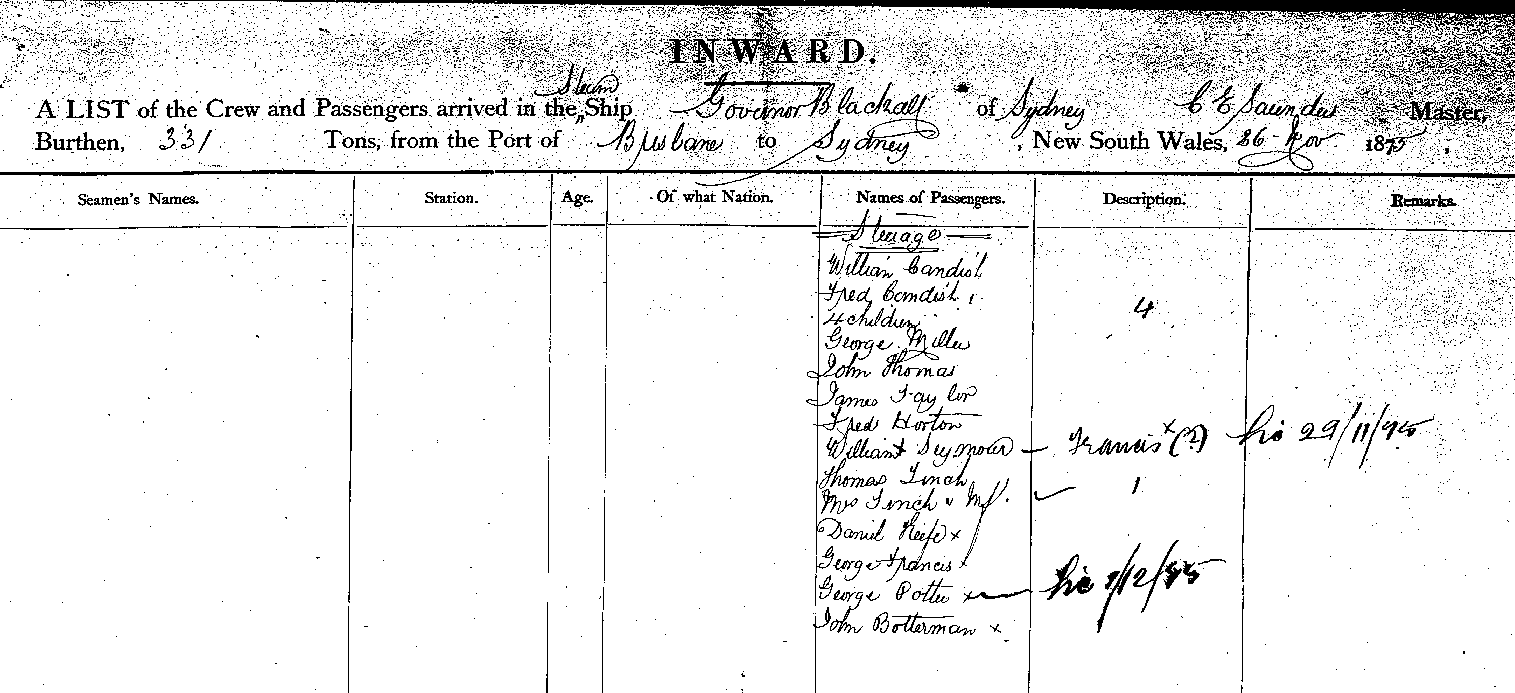 INWARD.
Steam
A LIST of the Crew and Passengers arrived in the Ship Govenor Blackall of Sydney C E Saunders Master,
Burthen, 331 Tons, from the Port of Brisbane to Sydney, New South Wales, 26 Nov 1875.
Seamen's Names. Station. Age. Of what Nation. Names of Passengers. Description. Remarks.
Steerage
William Candish
Fred Candish
4 children 4
George Miller
John Thomas
James Taylor
Fred Horton
William Seymour — Francis x (?) 29/11/75
Thomas Finch
Mrs Finch & Inf. 1
Daniel Keefe x
George Francis x
George Potter x — /12/75
John Botterman x